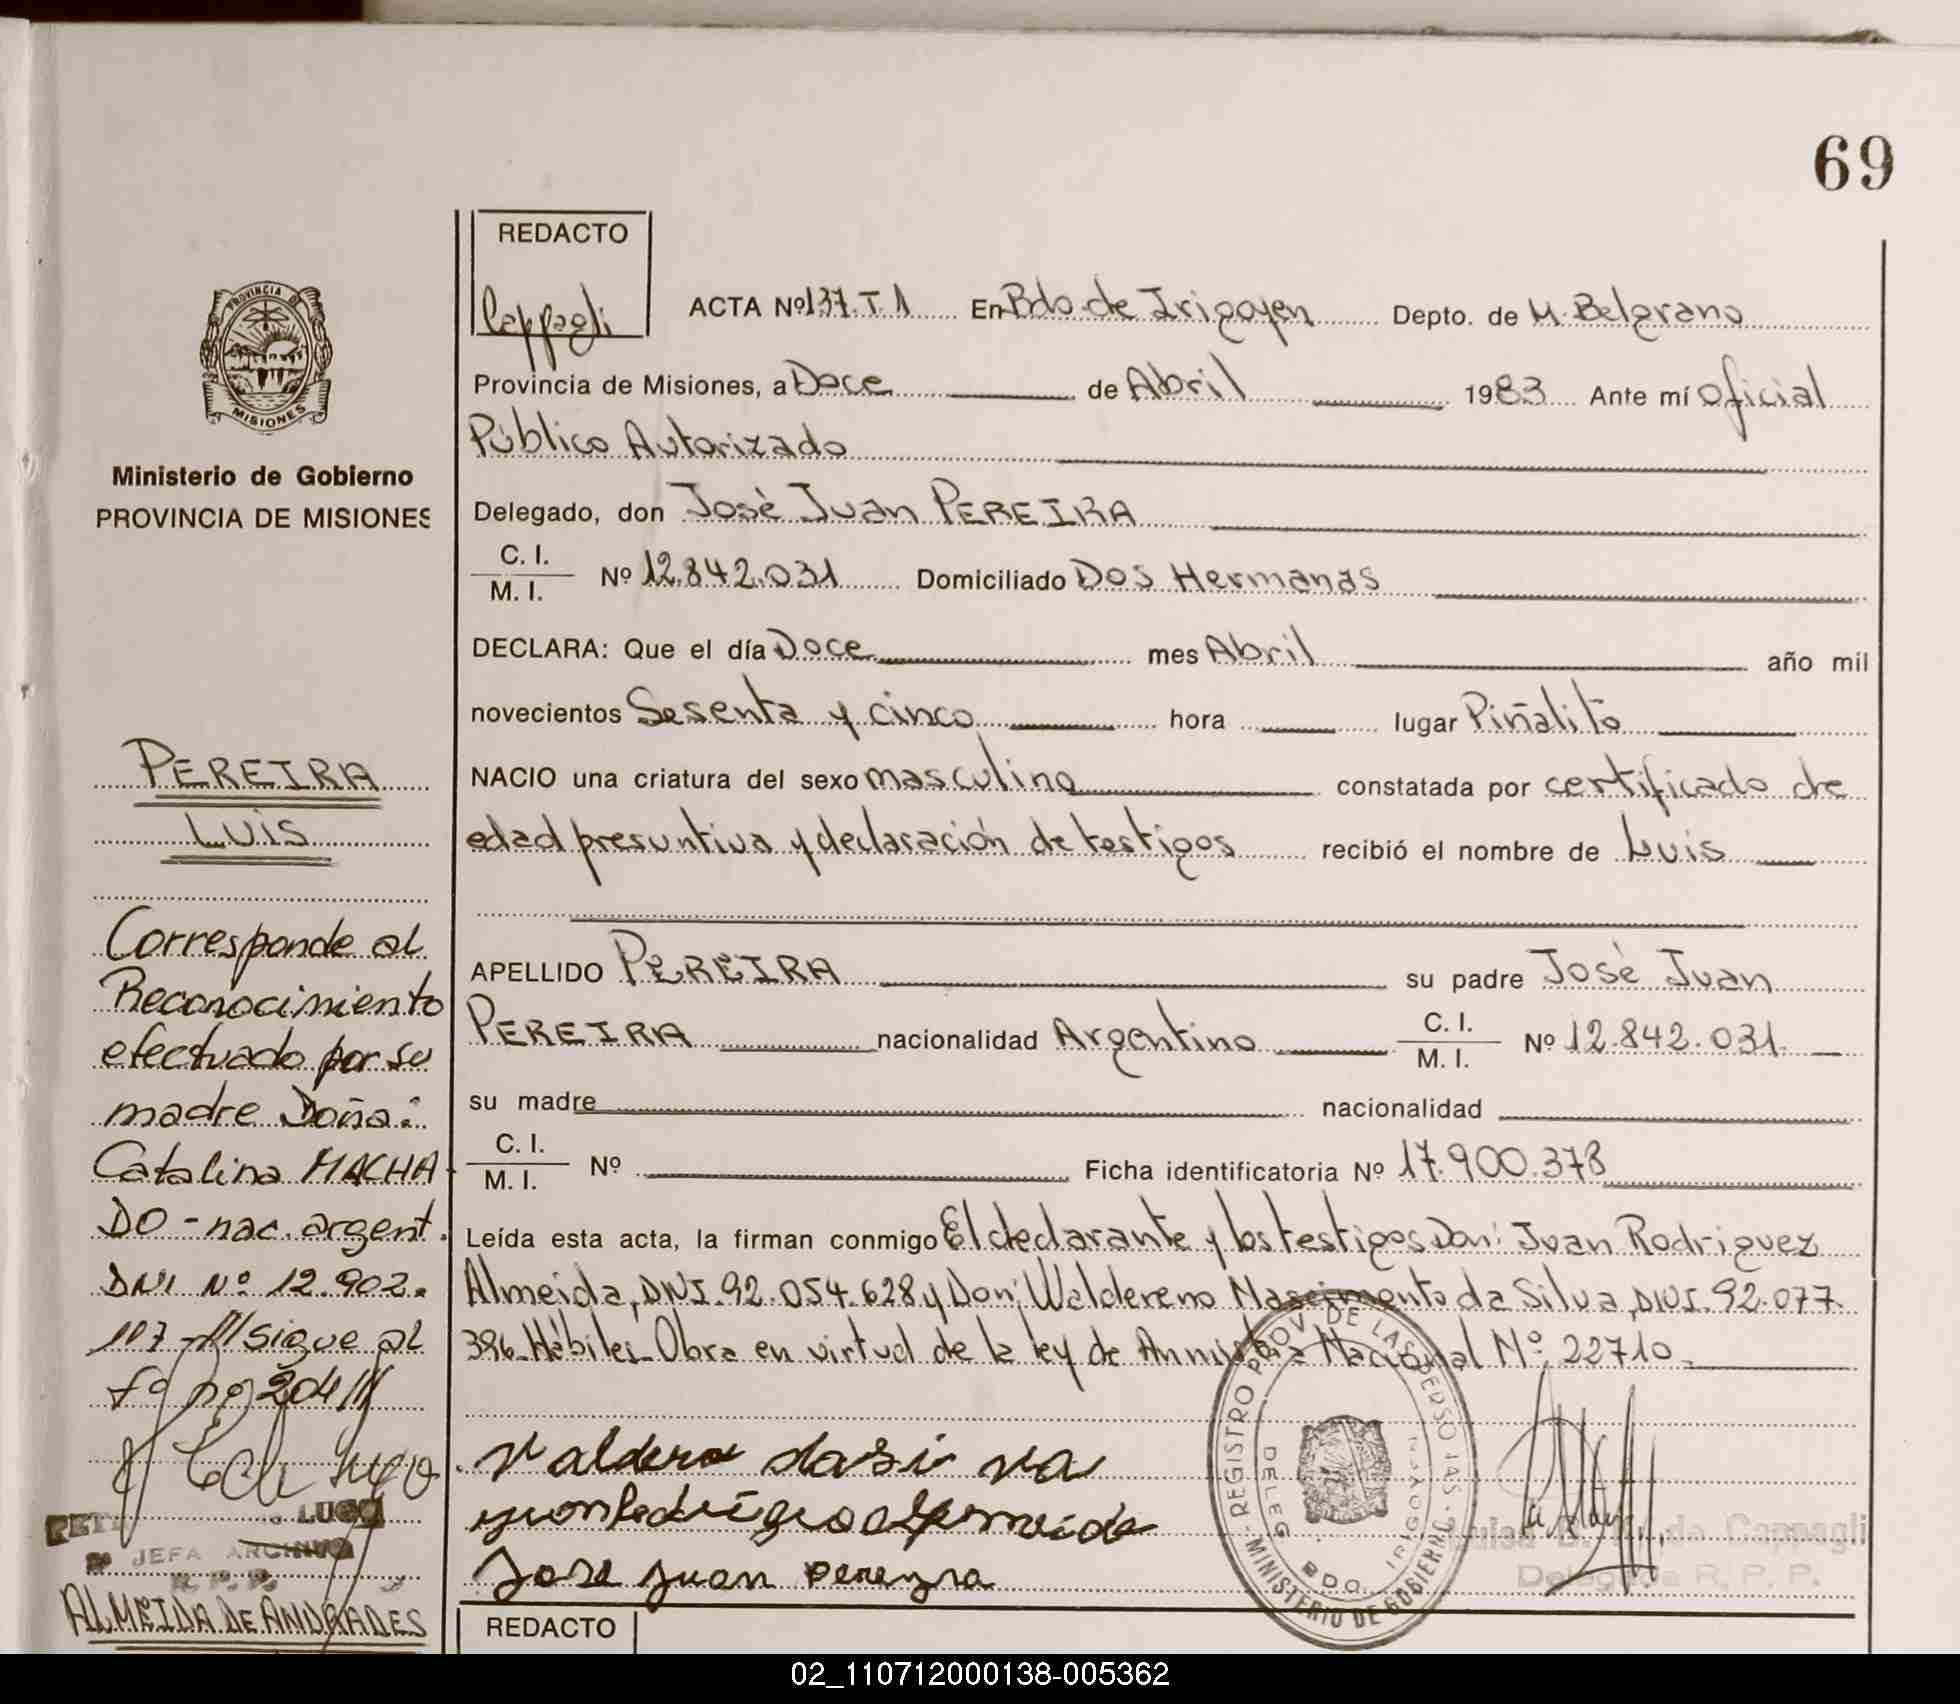 69
REDACTO
Cappagli
ACTA Nº 137.T.1 En Bdo de Irigoyen Depto. de M. Belgrano
Provincia de Misiones, a Doce de Abril 1983 Ante mí Oficial
Público Autorizado
Delegado, don José Juan PEREIRA
C. I.
M. I. Nº 12.842.031 Domiciliado Dos Hermanas
DECLARA: Que el día Doce mes Abril año mil
novecientos Sesenta y cinco hora lugar Piñalito
NACIO una criatura del sexo masculino constatada por certificado de
edad presuntiva y declaración de testigos recibió el nombre de Luis
APELLIDO PEREIRA su padre José Juan
PEREIRA nacionalidad Argentino C. I. M. I. Nº 12.842.031.
su madre nacionalidad
C. I.
M. I. Nº Ficha identificatoria Nº 17.900.378
Leída esta acta, la firman conmigo El declarante y los testigos Don: Juan Rodriguez
Almeida, DNI. 92.054.628 y Don: Waldereno Nascimento da Silva, DNI. 92.077.
396_Hábiles_Obra en virtud de la ley de Amnistia Nacional Nº 22710.
Jose Juan Pereyra
REGISTRO PROV. DE LAS PERSONAS
MINISTERIO DE GOBIERNO
DELEG. BDO. IRIGOYEN
Luisa B. de Cappagli
Delegada R. P. P.
REDACTO
PROVINCIA DE
MISIONES
Ministerio de Gobierno
PROVINCIA DE MISIONES
PEREIRA
LUIS
Corresponde al
Reconocimiento
efectuado por su
madre Doña:
Catalina MACHA-
DO - nac. argent.
DNI Nº 12.902.
117 -///sigue al
fº nº 204///
LUGO
JEFA ARCHIVO
R. P. P.
ALMEIDA DE ANDRADES
02_110712000138-005362